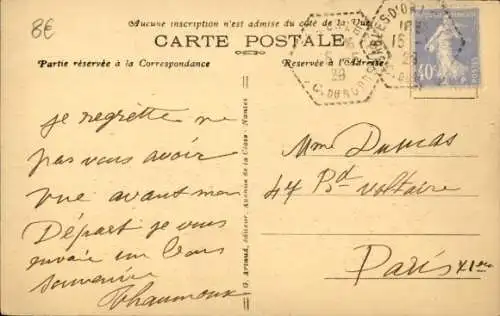 8€
Aucune inscription n'est admise du côté de la Vue
CARTE POSTALE
Partie réservée à la Correspondance
Réservée à l'Adresse
40c
POSTES
je regrette ne
pas vous avoir
vue avant mon
Départ je vous
envoie un bons
souvenire
Chaumoux
G. Artaud, éditeur, Avenue de la Close - Nantes
Mme Dumas
47 Bd Voltaire
Paris XIme